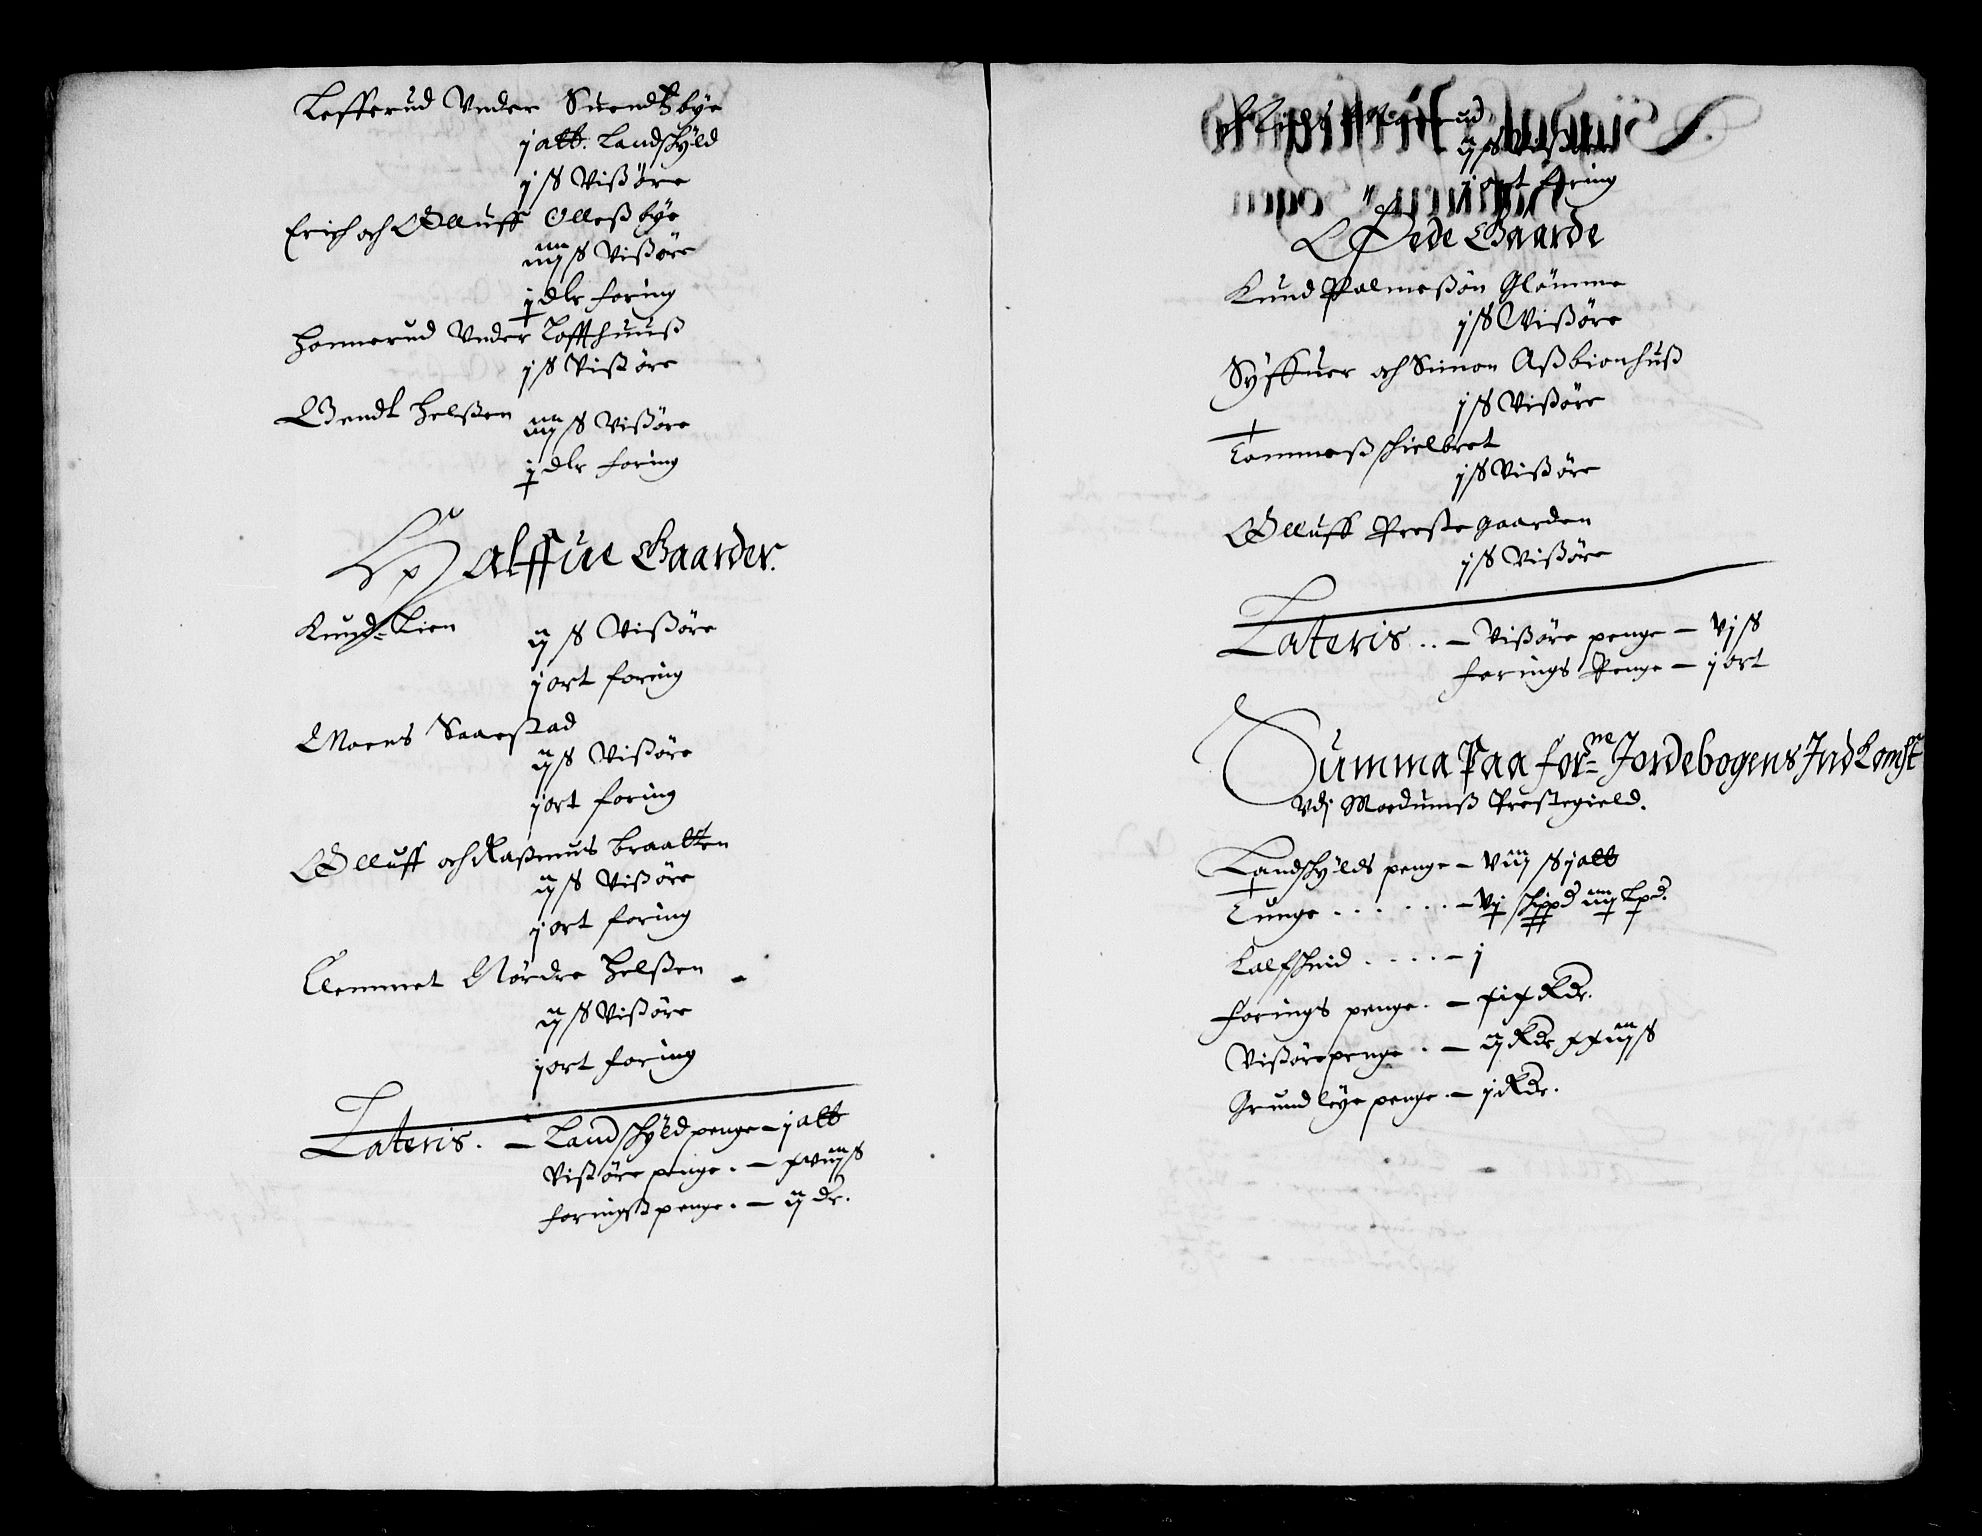 Lofferud Vnder Suendßbye
j alb. Landschyld
j ß Vißøre
Erich och Olluff Olleßbye
iiij ß Vißøre
j dlr foring
Honnerud Vnder Loffthuuß
j ß Vißøre
Bendt Helßen
iiij ß Vißøre
j dlr foring
Halffue Gaarder.
Knud Lien
ij ß Vißøre
j ort foring
Moens Saarstad
ij ß Vißøre
j ort foring
Olluff och Raßmus Braatten
ij ß Vißøre
j ort foring
Clemmet Nørdre Helßen
ij ß Vißøre
j ort foring
Lateris. – Landschyld penge – j alb
Vißøre penge. – xviij ß
foringß penge. – ij dr.
ij ß Vißøre
j ort foring
Øde Gaarde
Knud Palmeßøn Glømme
j ß Vißøre
Syffuer och Simon Aßbionhuß
j ß Vißøre
Tommeß schielbret
j ß Vißøre
Olluff Prestegaarden
j ß Vißøre
Lateris .. – Vißøre penge – vj ß
forings Penge – j ort
Summa Paa for:ne Jordebogens Indkomst
Vdj Modumß Prestegield.
Landschylds penge – viij ß j alb
Tunge . . . . . . – vj schippd iiij Lpd.
Kalfschind . . . . – j
forings penge. – xix Rdr.
Vißøre penge . – ij Rdr xxiij ß
Grundleye penge. – j Rdr.